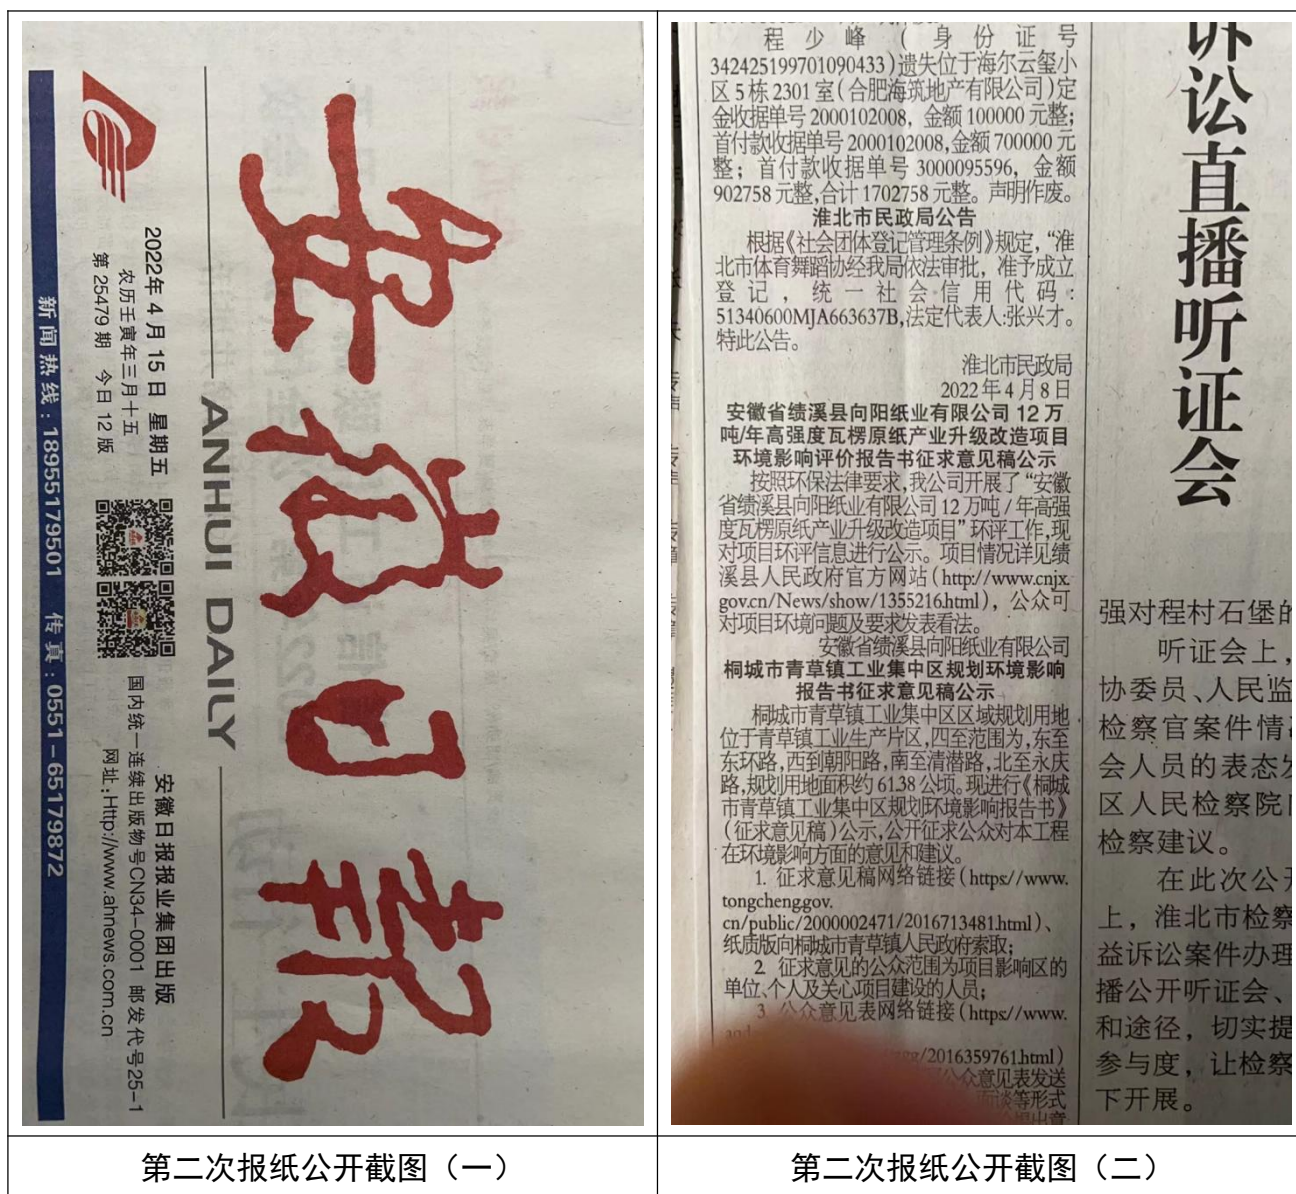 安徽日报
ANHUI DAILY
2022年4月15日 星期五
农历壬寅年三月十五
第25479期 今日12版
安徽日报报业集团出版
国内统一连续出版物号CN34-0001 邮发代号25-1
网址:Http://www.ahnews.com.cn
新闻热线:18955179501 传真:0551-65179872
程少峰(身份证号
342425199701090433)遗失位于海尔云玺小
区5栋2301室(合肥海筑地产有限公司)定
金收据单号2000102008,金额100000元整;
首付款收据单号2000102008,金额700000元
整;首付款收据单号3000095596,金额
902758元整,合计1702758元整。声明作废。
淮北市民政局公告
根据《社会团体登记管理条例》规定,“淮
北市体育舞蹈协经我局依法审批,准予成立
登记,统一社会信用代码:
51340600MJA663637B,法定代表人:张兴才。
特此公告。
淮北市民政局
2022年4月8日
安徽省绩溪县向阳纸业有限公司12万
吨/年高强度瓦楞原纸产业升级改造项目
环境影响评价报告书征求意见稿公示
按照环保法律要求,我公司开展了“安徽
省绩溪县向阳纸业有限公司12万吨/年高强
度瓦楞原纸产业升级改造项目”环评工作,现
对项目环评信息进行公示。项目情况详见绩
溪县人民政府官方网站(http://www.cnjx.
gov.cn/News/show/1355216.html),公众可
对项目环境问题及要求发表看法。
安徽省绩溪县向阳纸业有限公司
桐城市青草镇工业集中区规划环境影响
报告书征求意见稿公示
桐城市青草镇工业集中区区域规划用地
位于青草镇工业生产片区,四至范围为,东至
东环路,西到朝阳路,南至清潜路,北至永庆
路,规划用地面积约61.38公顷。现进行《桐城
市青草镇工业集中区规划环境影响报告书》
(征求意见稿)公示,公开征求公众对本工程
在环境影响方面的意见和建议。
1. 征求意见稿网络链接(https//www.
tongcheng.gov.
cn/public/2000002471/2016713481.html)、
纸质版向桐城市青草镇人民政府索取;
2. 征求意见的公众范围为项目影响区的
单位、个人及关心项目建设的人员;
3. 公众意见表网络链接(https//www.
/2016359761.html)
公众意见表发送
面谈等形式
诉讼直播听证会
强对程村石堡的
听证会上,
协委员、人民监
检察官案件情况
会人员的表态发
区人民检察院
检察建议。
在此次公开
上,淮北市检察
益诉讼案件办理
播公开听证会、
和途径,切实提
参与度,让检察
下开展。
第二次报纸公开截图(一)
第二次报纸公开截图(二)